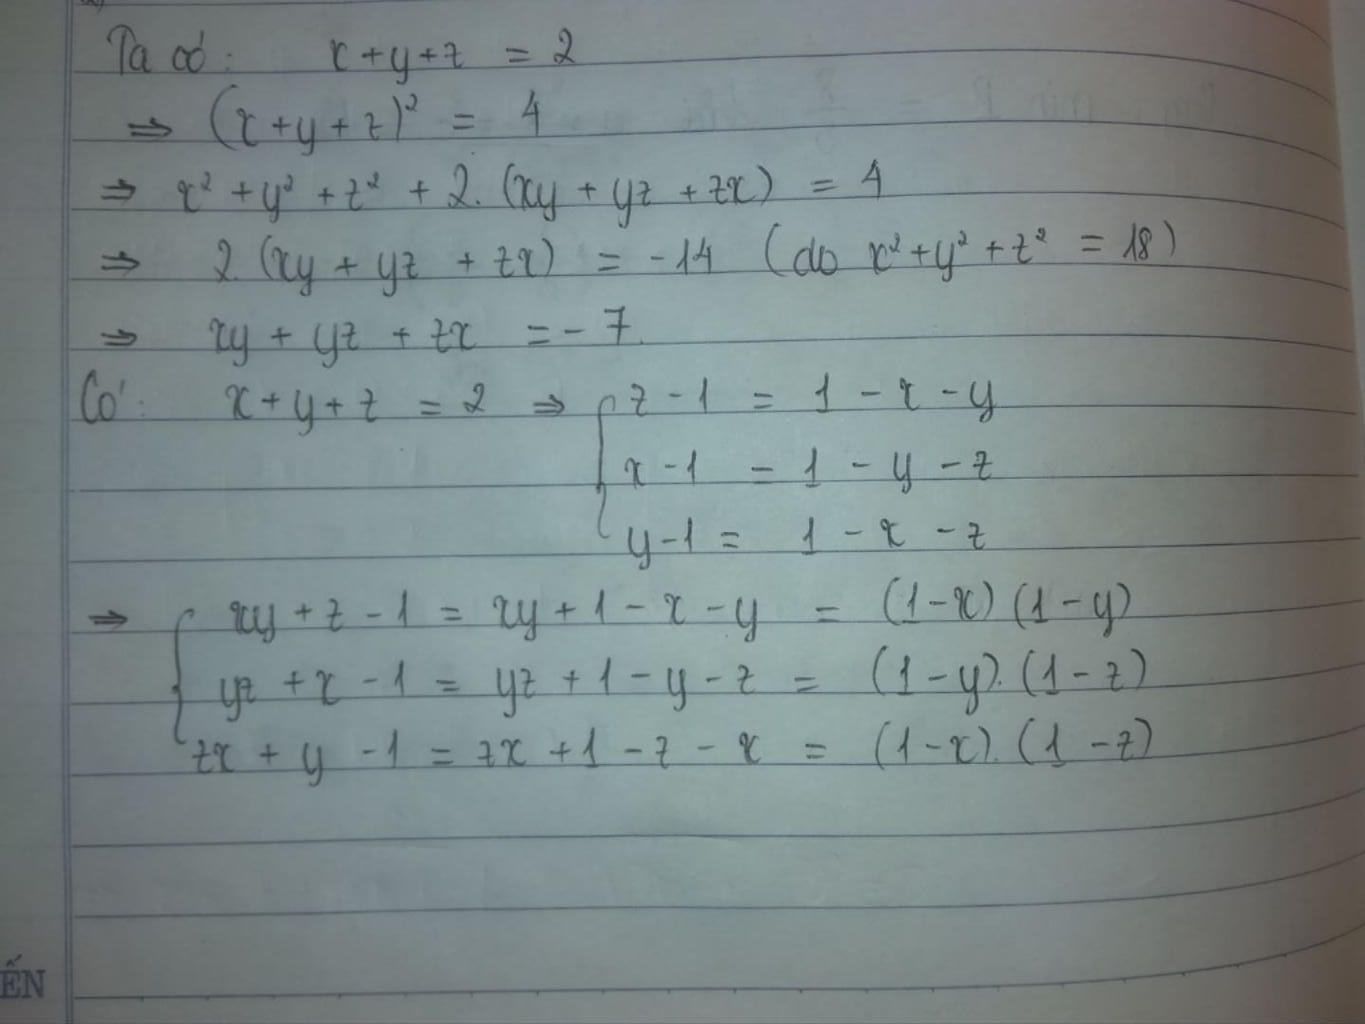 Ta có: x + y + z = 2
⇒ (x + y + z)² = 4
⇒ x² + y² + z² + 2.(xy + yz + zx) = 4
⇒ 2(xy + yz + zx) = -14 (do x² + y² + z² = 18)
⇒ xy + yz + zx = -7.
Có: x + y + z = 2 ⇒ { z - 1 = 1 - x - y
x - 1 = 1 - y - z
y - 1 = 1 - x - z
⇒ { xy + z - 1 = xy + 1 - x - y = (1-x)(1-y)
yz + x - 1 = yz + 1 - y - z = (1-y).(1-z)
zx + y - 1 = zx + 1 - z - x = (1-x).(1-z)
ẾN